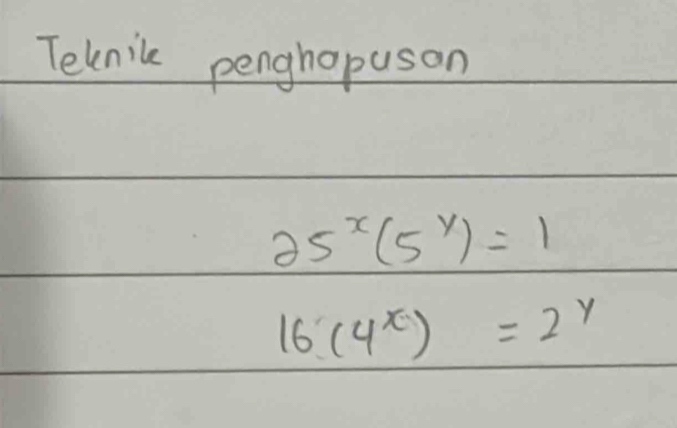 Teknik penghapusan
25^x(5^y) = 1
16(4^x) = 2^y